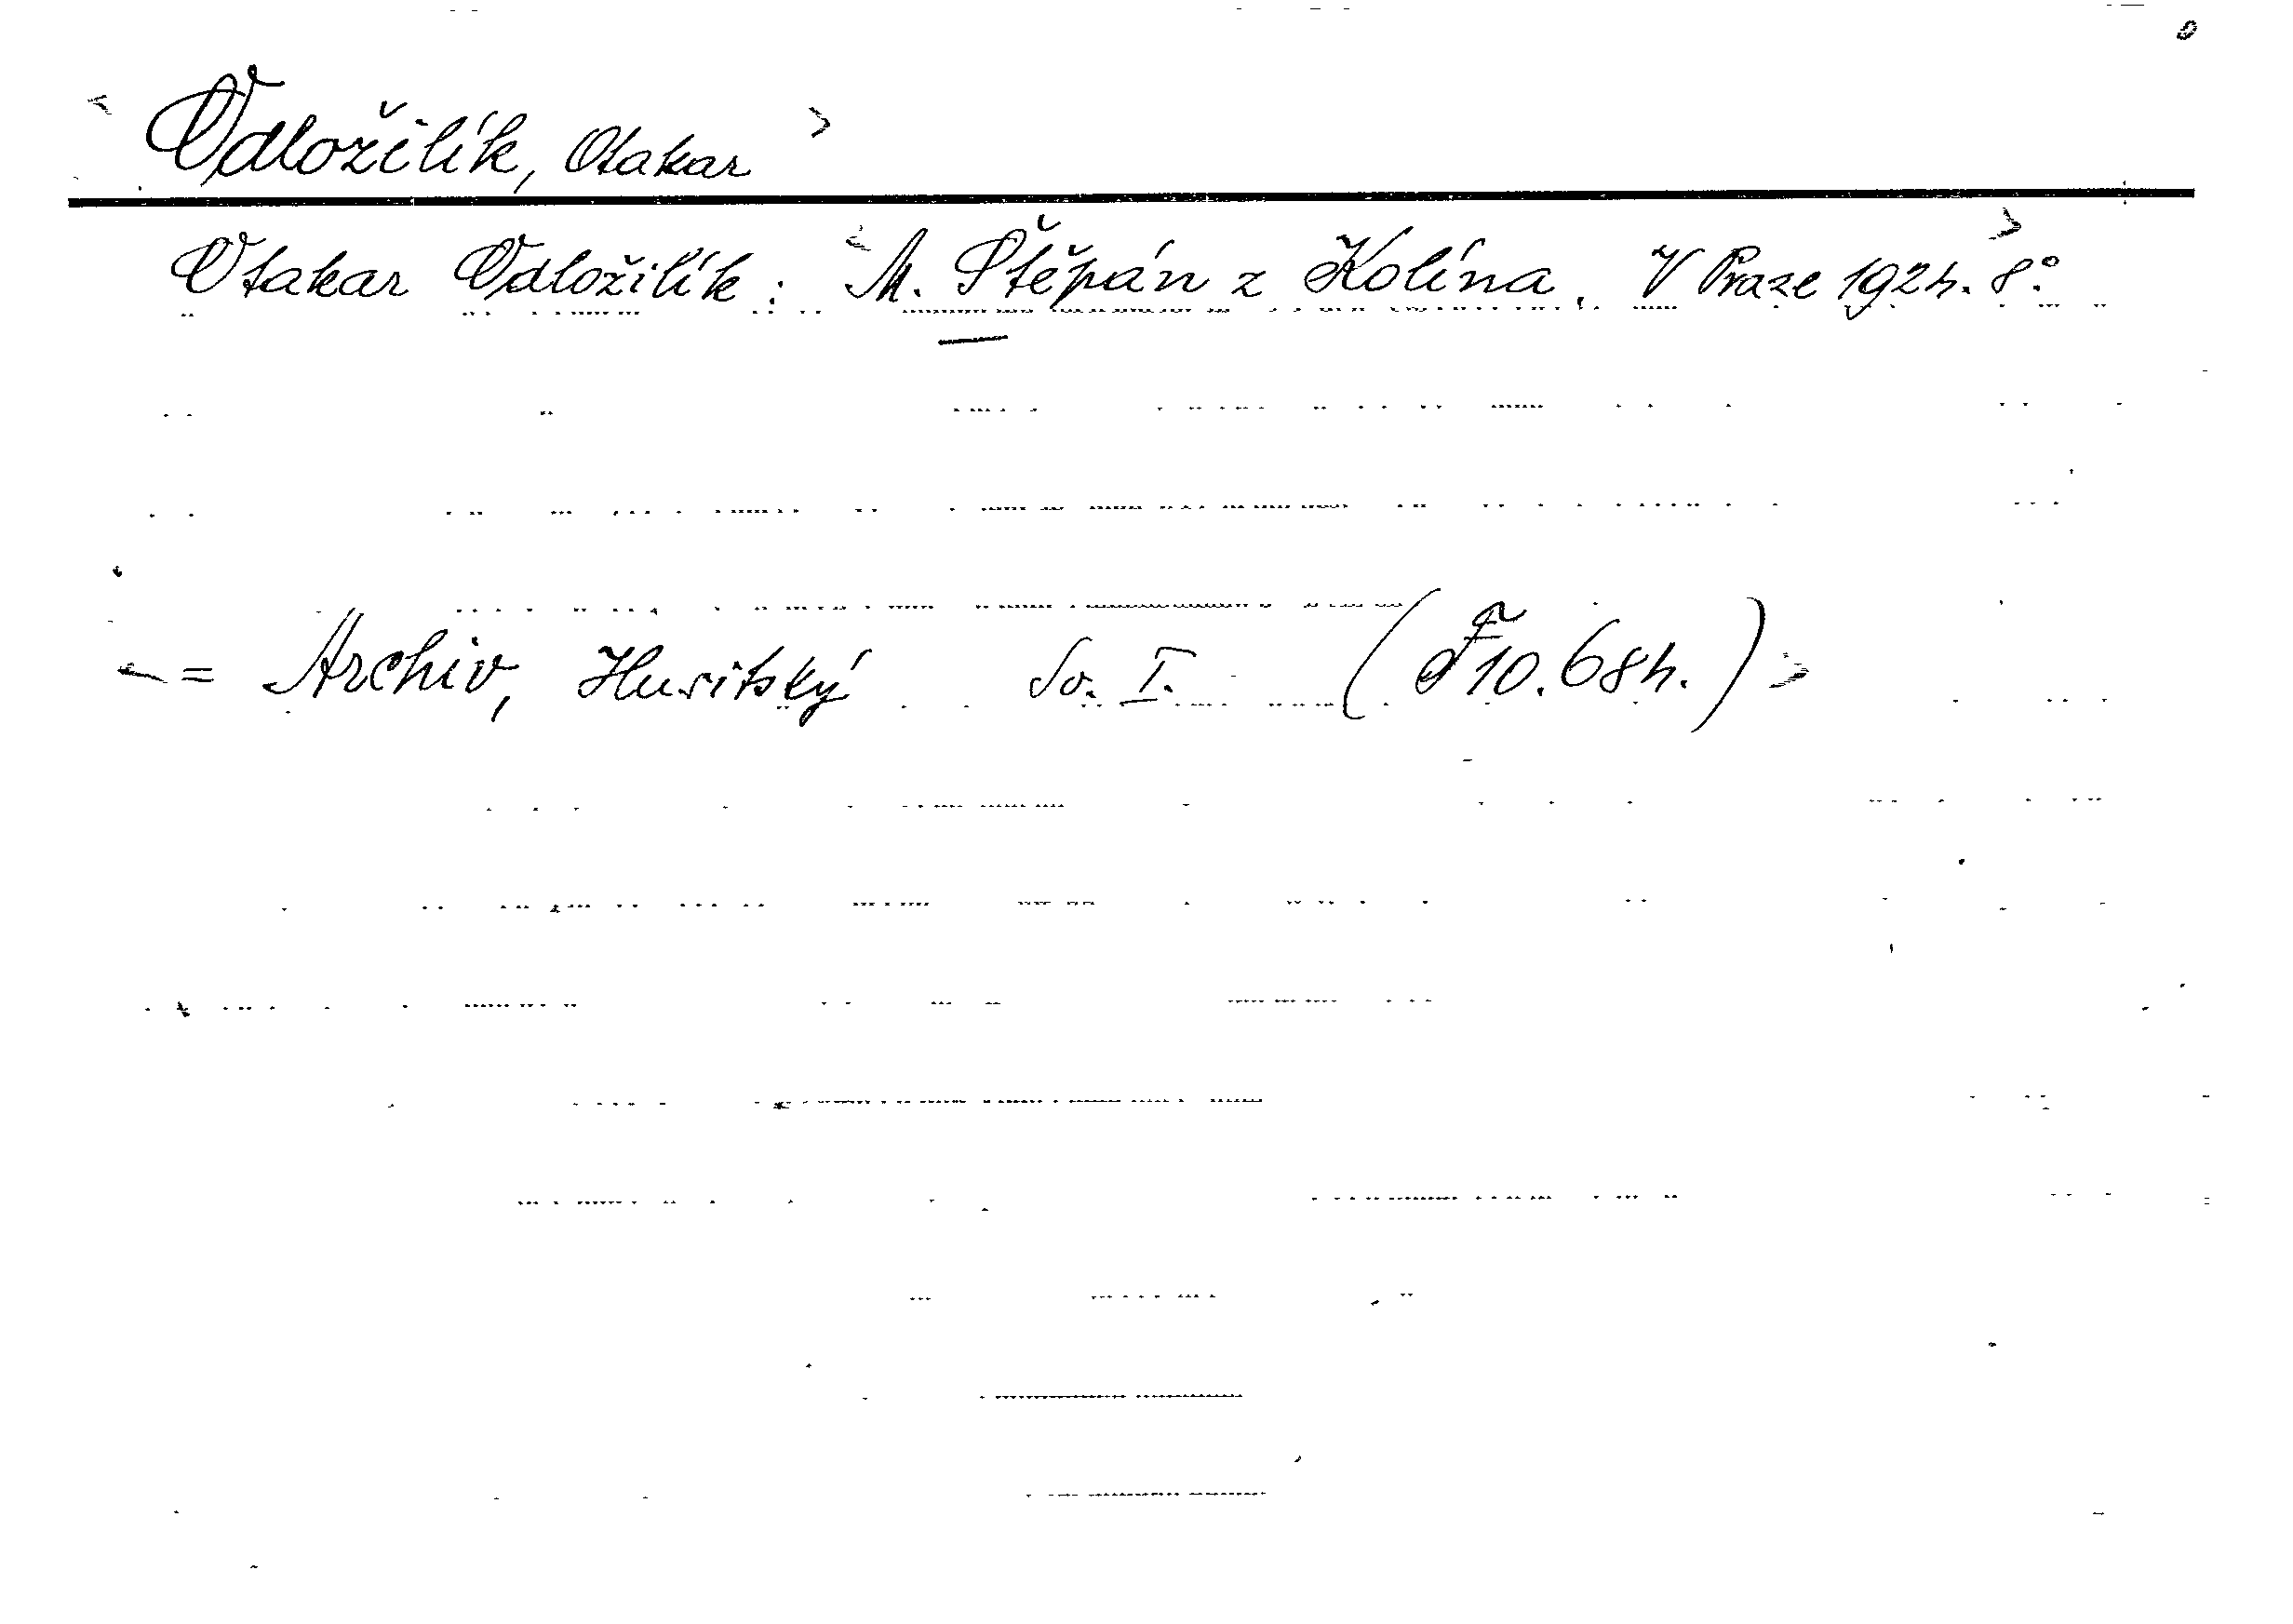 < Odložilík, Otakar >
Otakar Odložilík: < M. Štěpán z Kolína. V Praze 1924. 8°. >
< = Archiv, Husitský Sv. I. (F 10.684.) >